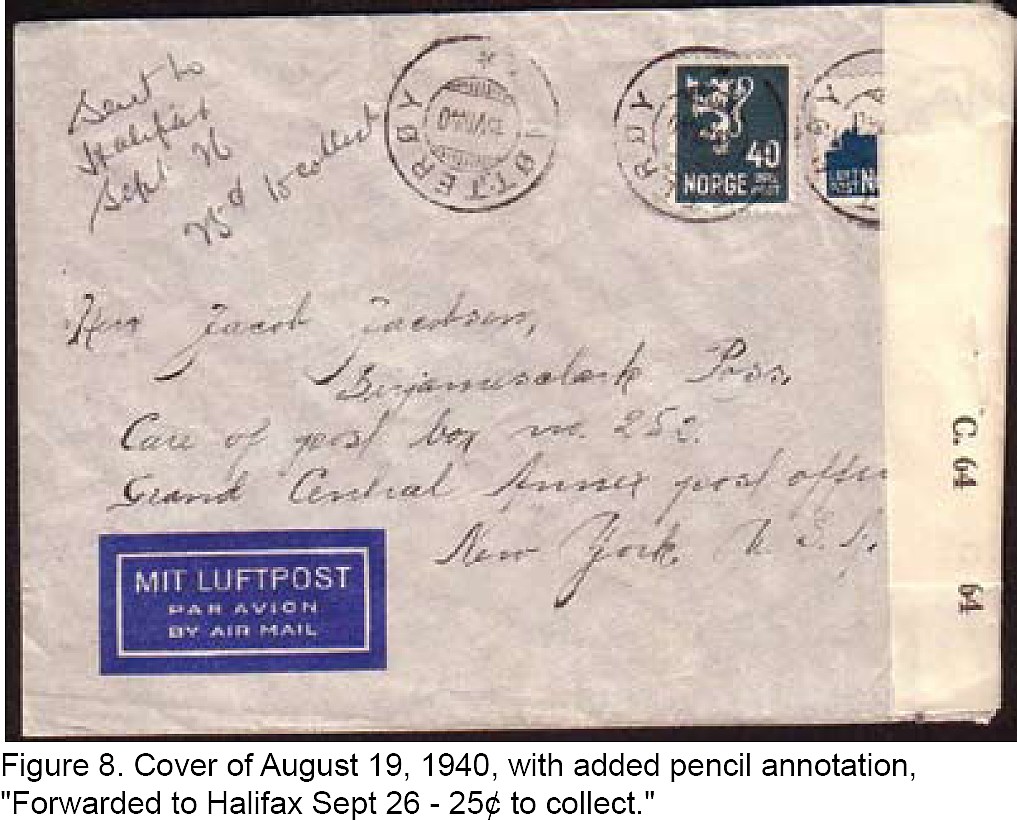 Sent to
Halifax
Sept 26
25¢ to collect
ØTTERØY
ERØY
40
NORGE
NO
Herr Jacob Jacobsen,
Poss.
Care of post box no. 252.
Grand Central Annex post offic
New York. U.S.A.
C. 64
64
MIT LUFTPOST
PAR AVION
BY AIR MAIL
Figure 8. Cover of August 19, 1940, with added pencil annotation,
"Forwarded to Halifax Sept 26 - 25¢ to collect."